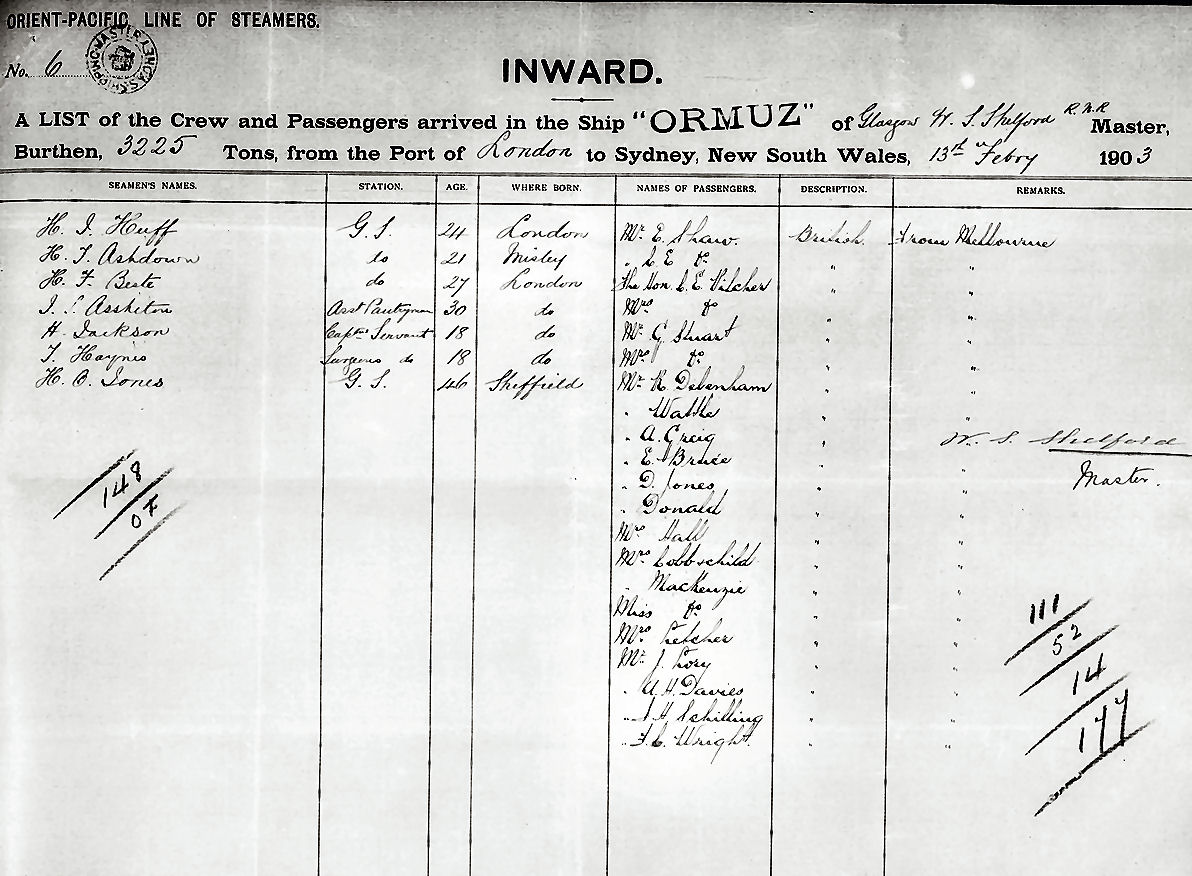 ORIENT-PACIFIC LINE OF STEAMERS.
No. 6
INWARD.
A LIST of the Crew and Passengers arrived in the Ship "ORMUZ" of Glasgow W. S. Shelford R.N.R Master,
Burthen, 3225 Tons, from the Port of London to Sydney, New South Wales, 13th Febry 1903
SEAMEN'S NAMES. STATION. AGE. WHERE BORN. NAMES OF PASSENGERS. DESCRIPTION. REMARKS.
H. I. Huff G.S. 24 London Mr E. Shaw. British. From Melbourne
H. T. Ashdown do 21 Misley " C E do " "
H. F. Beste do 27 London The Hon. C. E. Pilcher " "
Assheton Asst Pantryman 30 do Mrs do " "
H. Jackson Captns Servant 18 do Mr G Stuart " "
T. Haynes Surgeons do 18 do Mrs do " "
H. O. Jones G.S. 46 Sheffield Mr R. Debenham " "
" " "
" A. Greig " " W. S. Shelford
" E. Bruce " "
" D. Jones " " Master.
" Donald " "
Mrs Hall " "
Mrs Cobb & child " "
" MacKenzie " "
Miss do " "
Mrs Fletcher " "
Mr J. Cory " "
" A. H. Davies " "
" H Schilling " "
" F. C. Wright. " "
148
07
111
52
14
177